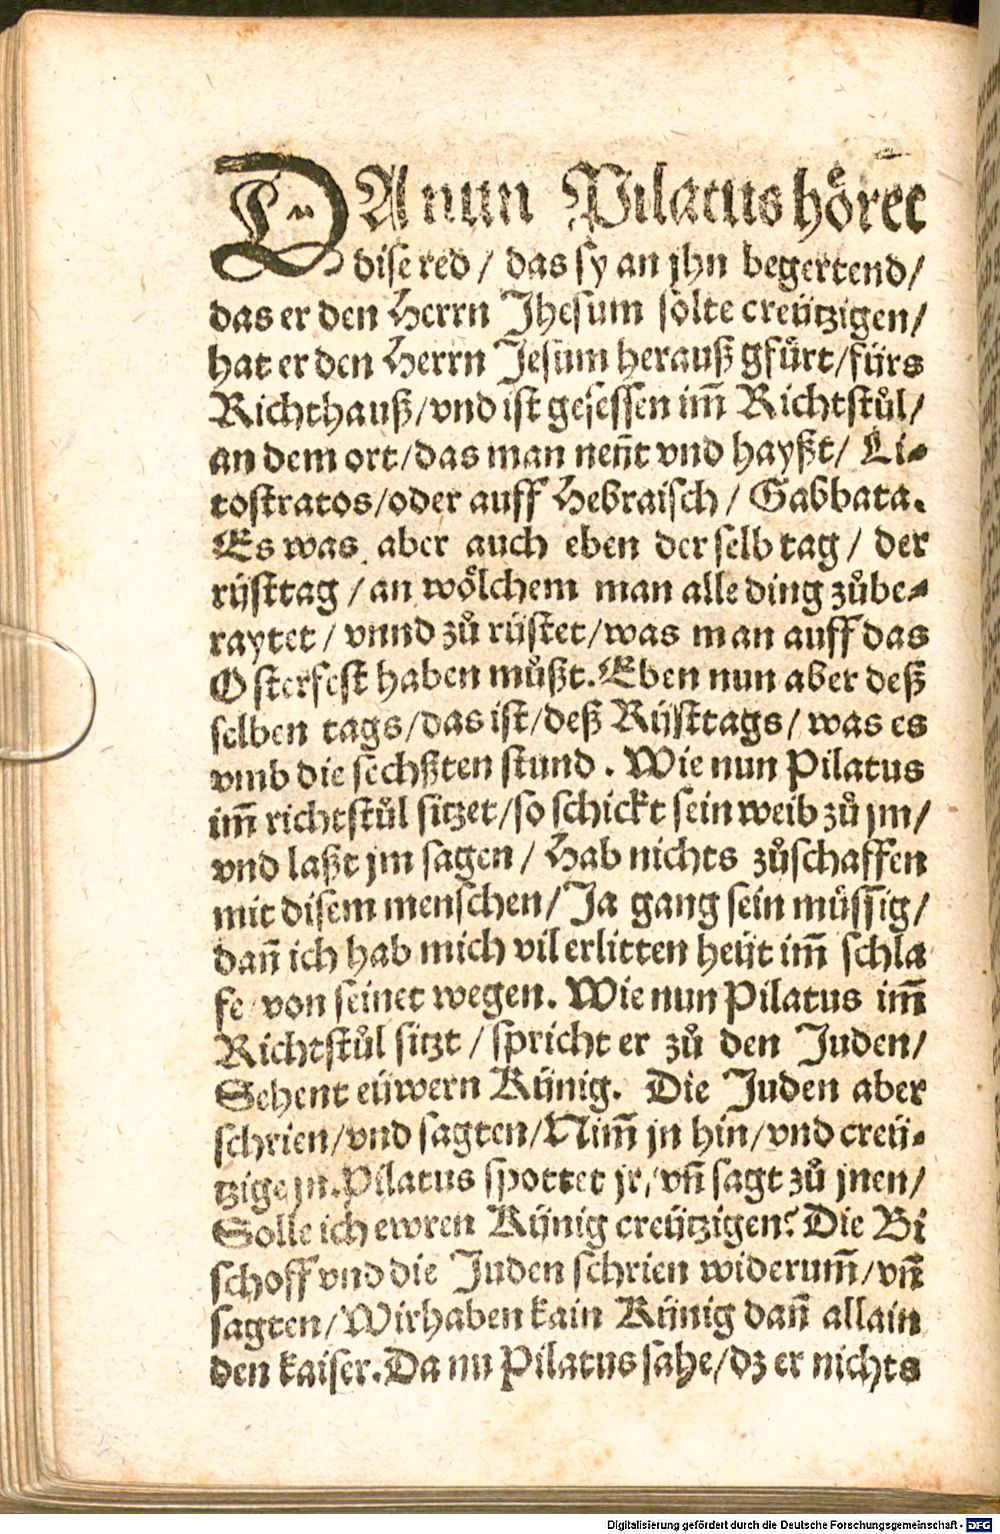 DA nun Pilatus hoͤret
dise red / das sy an jhn begertend /
das er den Herrn Jhesum soͤlte creützigen /
hat er den Herrn Jesum herauß gfuͤrt / fürs
Richthauß / vnd ist gesessen im̃ Richtstuͦl /
an dem ort / das man nen̄t vnd hayßt / Li⸗
tostratos / oder auff Hebraisch / Gabbata.
Es was aber auch eben der selb tag / der
rüsttag / an woͤlchem man alle ding zuͦbe⸗
raytet / vnnd zuͦ rüstet / was man auff das
Osterfest haben muͤßt. Eben nun aber deß
selben tags / das ist / deß Rüsttags / was es
vmb die sechßten stund. Wie nun Pilatus
im̃ richtstuͦl sitzet / so schickt sein weib zuͦ jm /
vnd laßt jm sagen / Hab nichts zuͦschaffen
mit disem menschen / Ja gang sein muͤssig /
dan̄ ich hab mich vil erlitten heüt im̃ schla
fe von seinet wegen. Wie nun Pilatus im̃
Richtstuͦl sitzt / spricht er zuͦ den Juden /
Sehent eüwern Künig. Die Juden aber
schrien / vnd sagten / Nim̃ jn hin / vnd creü⸗
tzige jn. Pilatus spottet jr / vn̄ sagt zuͦ jnen /
Solle ich ewren Künig creützigen? Die Bi
schoff vnd die Juden schrien widerum̃ / vn̄
sagten / Wir haben kain Künig dan̄ allain
den kaiser. Da nu Pilatus sahe / dz er nichts
Digitalisierung gefördert durch die Deutsche Forschungsgemeinschaft - DFG